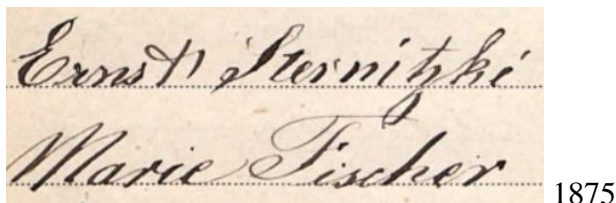 Ernst Sternitzki
Marie Fischer
1875